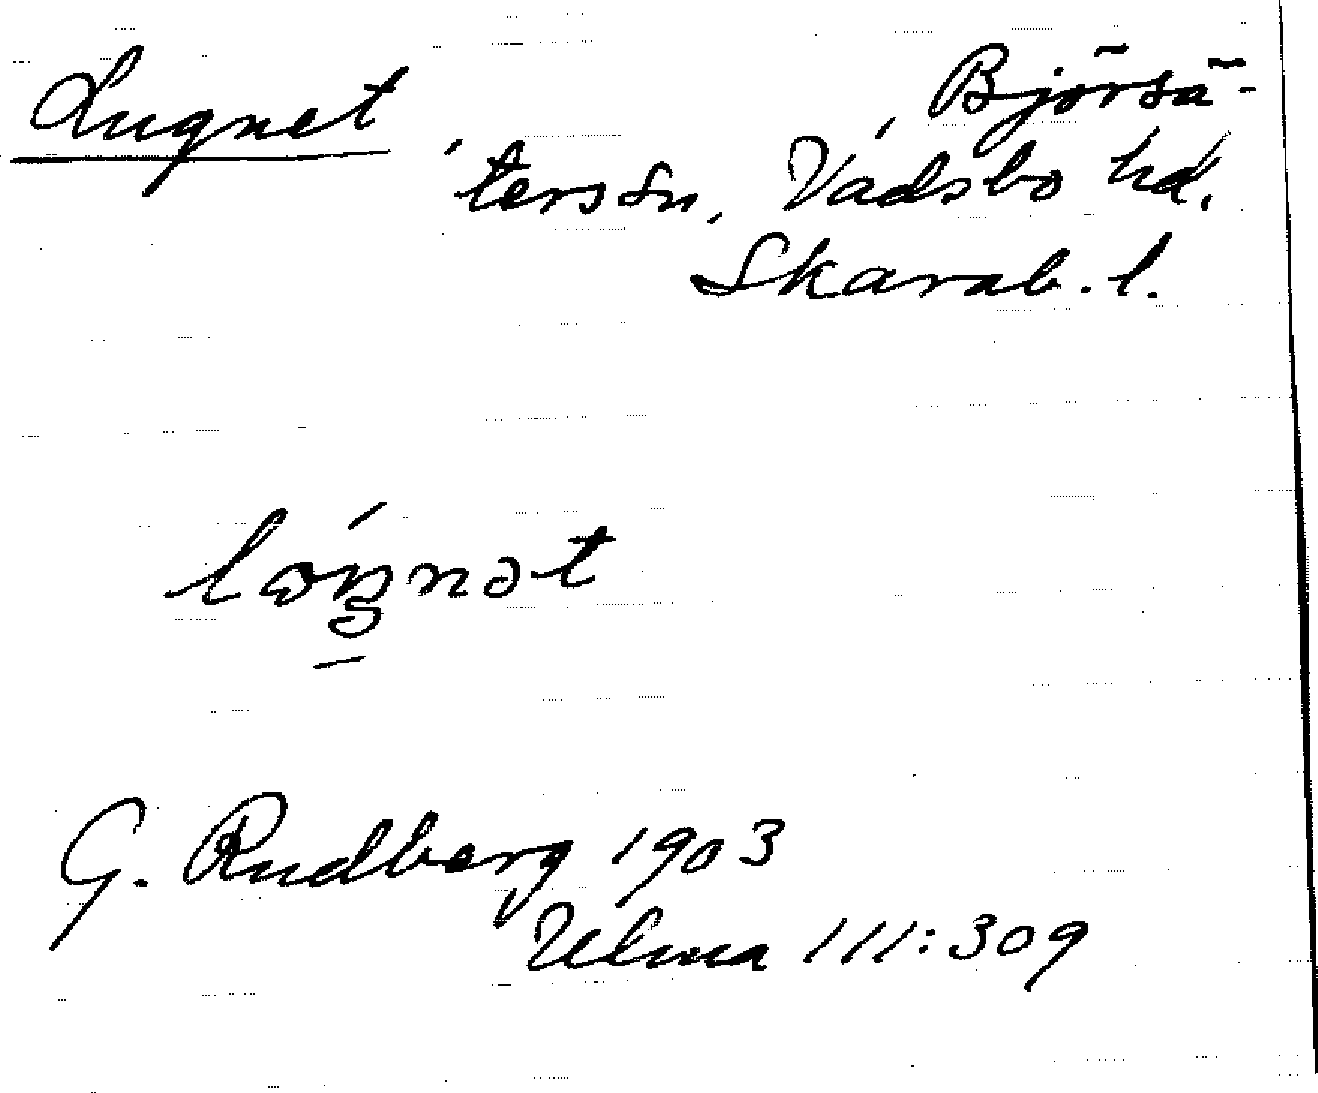 Lugnet
Björsä-
ters sn, Vadsbo hd.
Skarab. l.
G. Rudberg 1903
Ulma 111:309